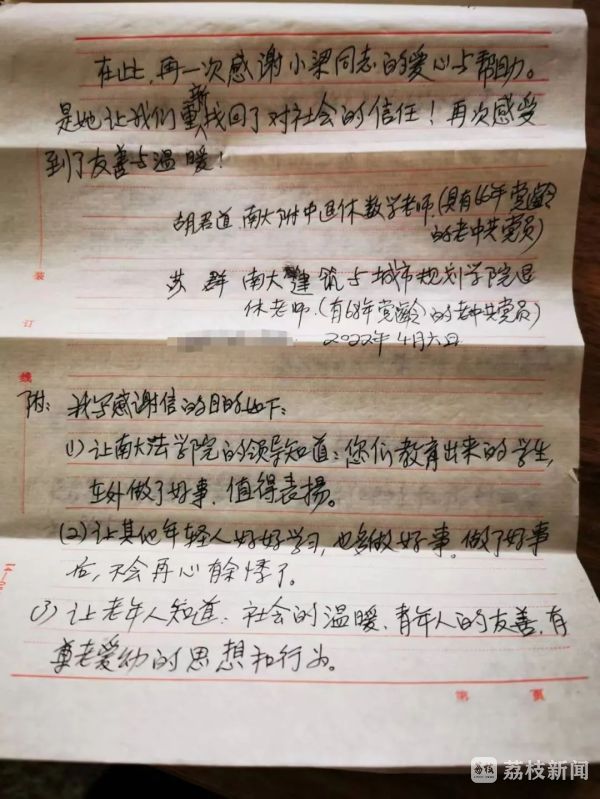 在此,再一次感谢小梁同志的爱心与帮助。
是她让我们重新找回了对社会的信任!再次感受
到了友善与温暖!
胡君道,南大附中退休数学老师(具有66年党龄
的老中共党员)
苏群 南大建筑与城市规划学院退
休老师.(有68年党龄)的老中共党员)
2022年4月六日
装
订
线
附:我写感谢信的目的如下:
(1)让南大法学院的领导知道:您们教育出来的学生,
在外做了好事,值得表揚。
(2)让其他年轻人好好学习,也多做好事,做了好事
后,不会再心有余悸了。
(3)让老年人知道:社会的温暖、青年人的友善,有
尊老爱幼的思想和行为。
第 页
荔枝新闻